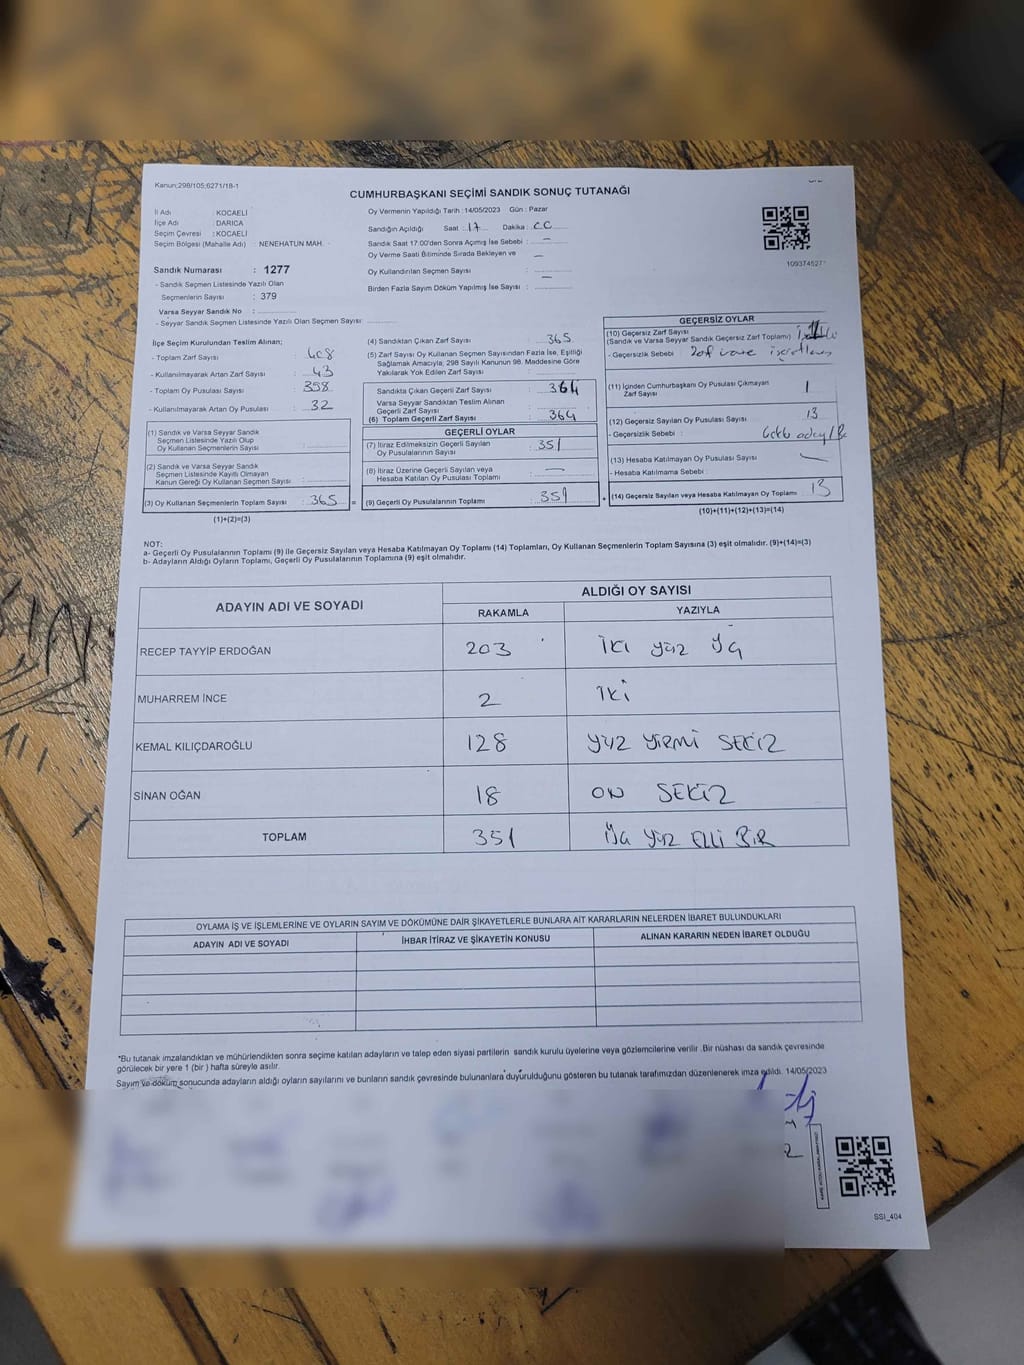 Kanun;298/105;6271/18-1
CUMHURBAŞKANI SEÇİMİ SANDIK SONUÇ TUTANAĞI
İl Adı : KOCAELİ
İlçe Adı : DARICA
Seçim Çevresi : KOCAELİ
Seçim Bölgesi (Mahalle Adı) : NENEHATUN MAH.
Sandık Numarası : 1277
- Sandık Seçmen Listesinde Yazılı Olan
Seçmenlerin Sayısı : 379
Varsa Seyyar Sandık No :
- Seyyar Sandık Seçmen Listesinde Yazılı Olan Seçmen Sayısı:
Oy Vermenin Yapıldığı Tarih :14/05/2023 Gün : Pazar
Sandığın Açıldığı Saat : 17 Dakika :
Sandık Saat 17.00'den Sonra Açılmış İse Sebebi : —
Oy Verme Saati Bitiminde Sırada Bekleyen ve —
Oy Kullandırılan Seçmen Sayısı :
Birden Fazla Sayım Döküm Yapılmış İse Sayısı : —
İlçe Seçim Kurulundan Teslim Alınan;
- Toplam Zarf Sayısı : 408
- Kullanılmayarak Artan Zarf Sayısı : 43
- Toplam Oy Pusulası Sayısı : 358
- Kullanılmayarak Artan Oy Pusulası : 32
(1) Sandık ve Varsa Seyyar Sandık
Seçmen Listesinde Yazılı Olup
Oy Kullanan Seçmenlerin Sayısı :
(2) Sandık ve Varsa Seyyar Sandık
Seçmen Listesinde Kayıtlı Olmayan
Kanun Gereği Oy Kullanan Seçmen Sayısı :
(3) Oy Kullanan Seçmenlerin Toplam Sayısı : 365 =
(1)+(2)=(3)
(4) Sandıktan Çıkan Zarf Sayısı : 365
(5) Zarf Sayısı Oy Kullanan Seçmen Sayısından Fazla İse, Eşitliği
Sağlamak Amacıyla, 298 Sayılı Kanunun 98. Maddesine Göre
Yakılarak Yok Edilen Zarf Sayısı :
Sandıkta Çıkan Geçerli Zarf Sayısı : 364
Varsa Seyyar Sandıktan Teslim Alınan
Geçerli Zarf Sayısı :
(6) Toplam Geçerli Zarf Sayısı : 364
GEÇERLİ OYLAR
(7) İtiraz Edilmeksizin Geçerli Sayılan
Oy Pusulasının Sayısı : 351
(8) İtiraz Üzerine Geçerli Sayılan veya
Hesaba Katılan Oy Pusulası Toplamı : —
(9) Geçerli Oy Pusulalarının Toplamı : 351 +
GEÇERSİZ OYLAR
(10) Geçersiz Zarf Sayısı
(Sandık ve Varsa Seyyar Sandık Geçersiz Zarf Toplamı) :
- Geçersizlik Sebebi :
(11) İçinden Cumhurbaşkanı Oy Pusulası Çıkmayan
Zarf Sayısı : 1
(12) Geçersiz Sayılan Oy Pusulası Sayısı : 13
- Geçersizlik Sebebi :
(13) Hesaba Katılmayan Oy Pusulası Sayısı : —
- Hesaba Katılmama Sebebi :
(14) Geçersiz Sayılan veya Hesaba Katılmayan Oy Toplamı : 13
(10)+(11)+(12)+(13)=(14)
NOT:
a- Geçerli Oy Pusulalarının Toplamı (9) ile Geçersiz Sayılan veya Hesaba Katılmayan Oy Toplamı (14) Toplamları, Oy Kullanan Seçmenlerin Toplam Sayısına (3) eşit olmalıdır. (9)+(14)=(3)
b- Adayların Aldığı Oyların Toplamı, Geçerli Oy Pusulalarının Toplamına (9) eşit olmalıdır.
ADAYIN ADI VE SOYADI ALDIĞI OY SAYISI
RAKAMLA YAZIYLA
RECEP TAYYİP ERDOĞAN 203 İKİ yüz üç
MUHARREM İNCE 2 İKİ
KEMAL KILIÇDAROĞLU 128 YÜZ YİRMİ SEKİZ
SİNAN OĞAN 18 ON SEKİZ
TOPLAM 351 üç yüz ELLİ BİR
OYLAMA İŞ VE İŞLEMLERİNE VE OYLARIN SAYIM VE DÖKÜMÜNE DAİR ŞİKAYETLERLE BUNLARA AİT KARARLARIN NELERDEN İBARET BULUNDUKLARI
ADAYIN ADI VE SOYADI İHBAR İTİRAZ VE ŞİKAYETİN KONUSU ALINAN KARARIN NEDEN İBARET OLDUĞU
*Bu tutanak imzalandıktan ve mühürlendikten sonra seçime katılan adayların ve talep eden siyasi partilerin sandık kurulu üyelerine veya gözlemcilerine verilir .Bir nüshası da sandık çevresinde
görülecek bir yere 1 (bir ) hafta süreyle asılır.
Sayım ve döküm sonucunda adayların aldığı oyların sayılarını ve bunların sandık çevresinde bulunanlara duyurulduğunu gösteren bu tutanak tarafımızdan düzenlenerek imza edildi. 14/05/2023
SSİ_404